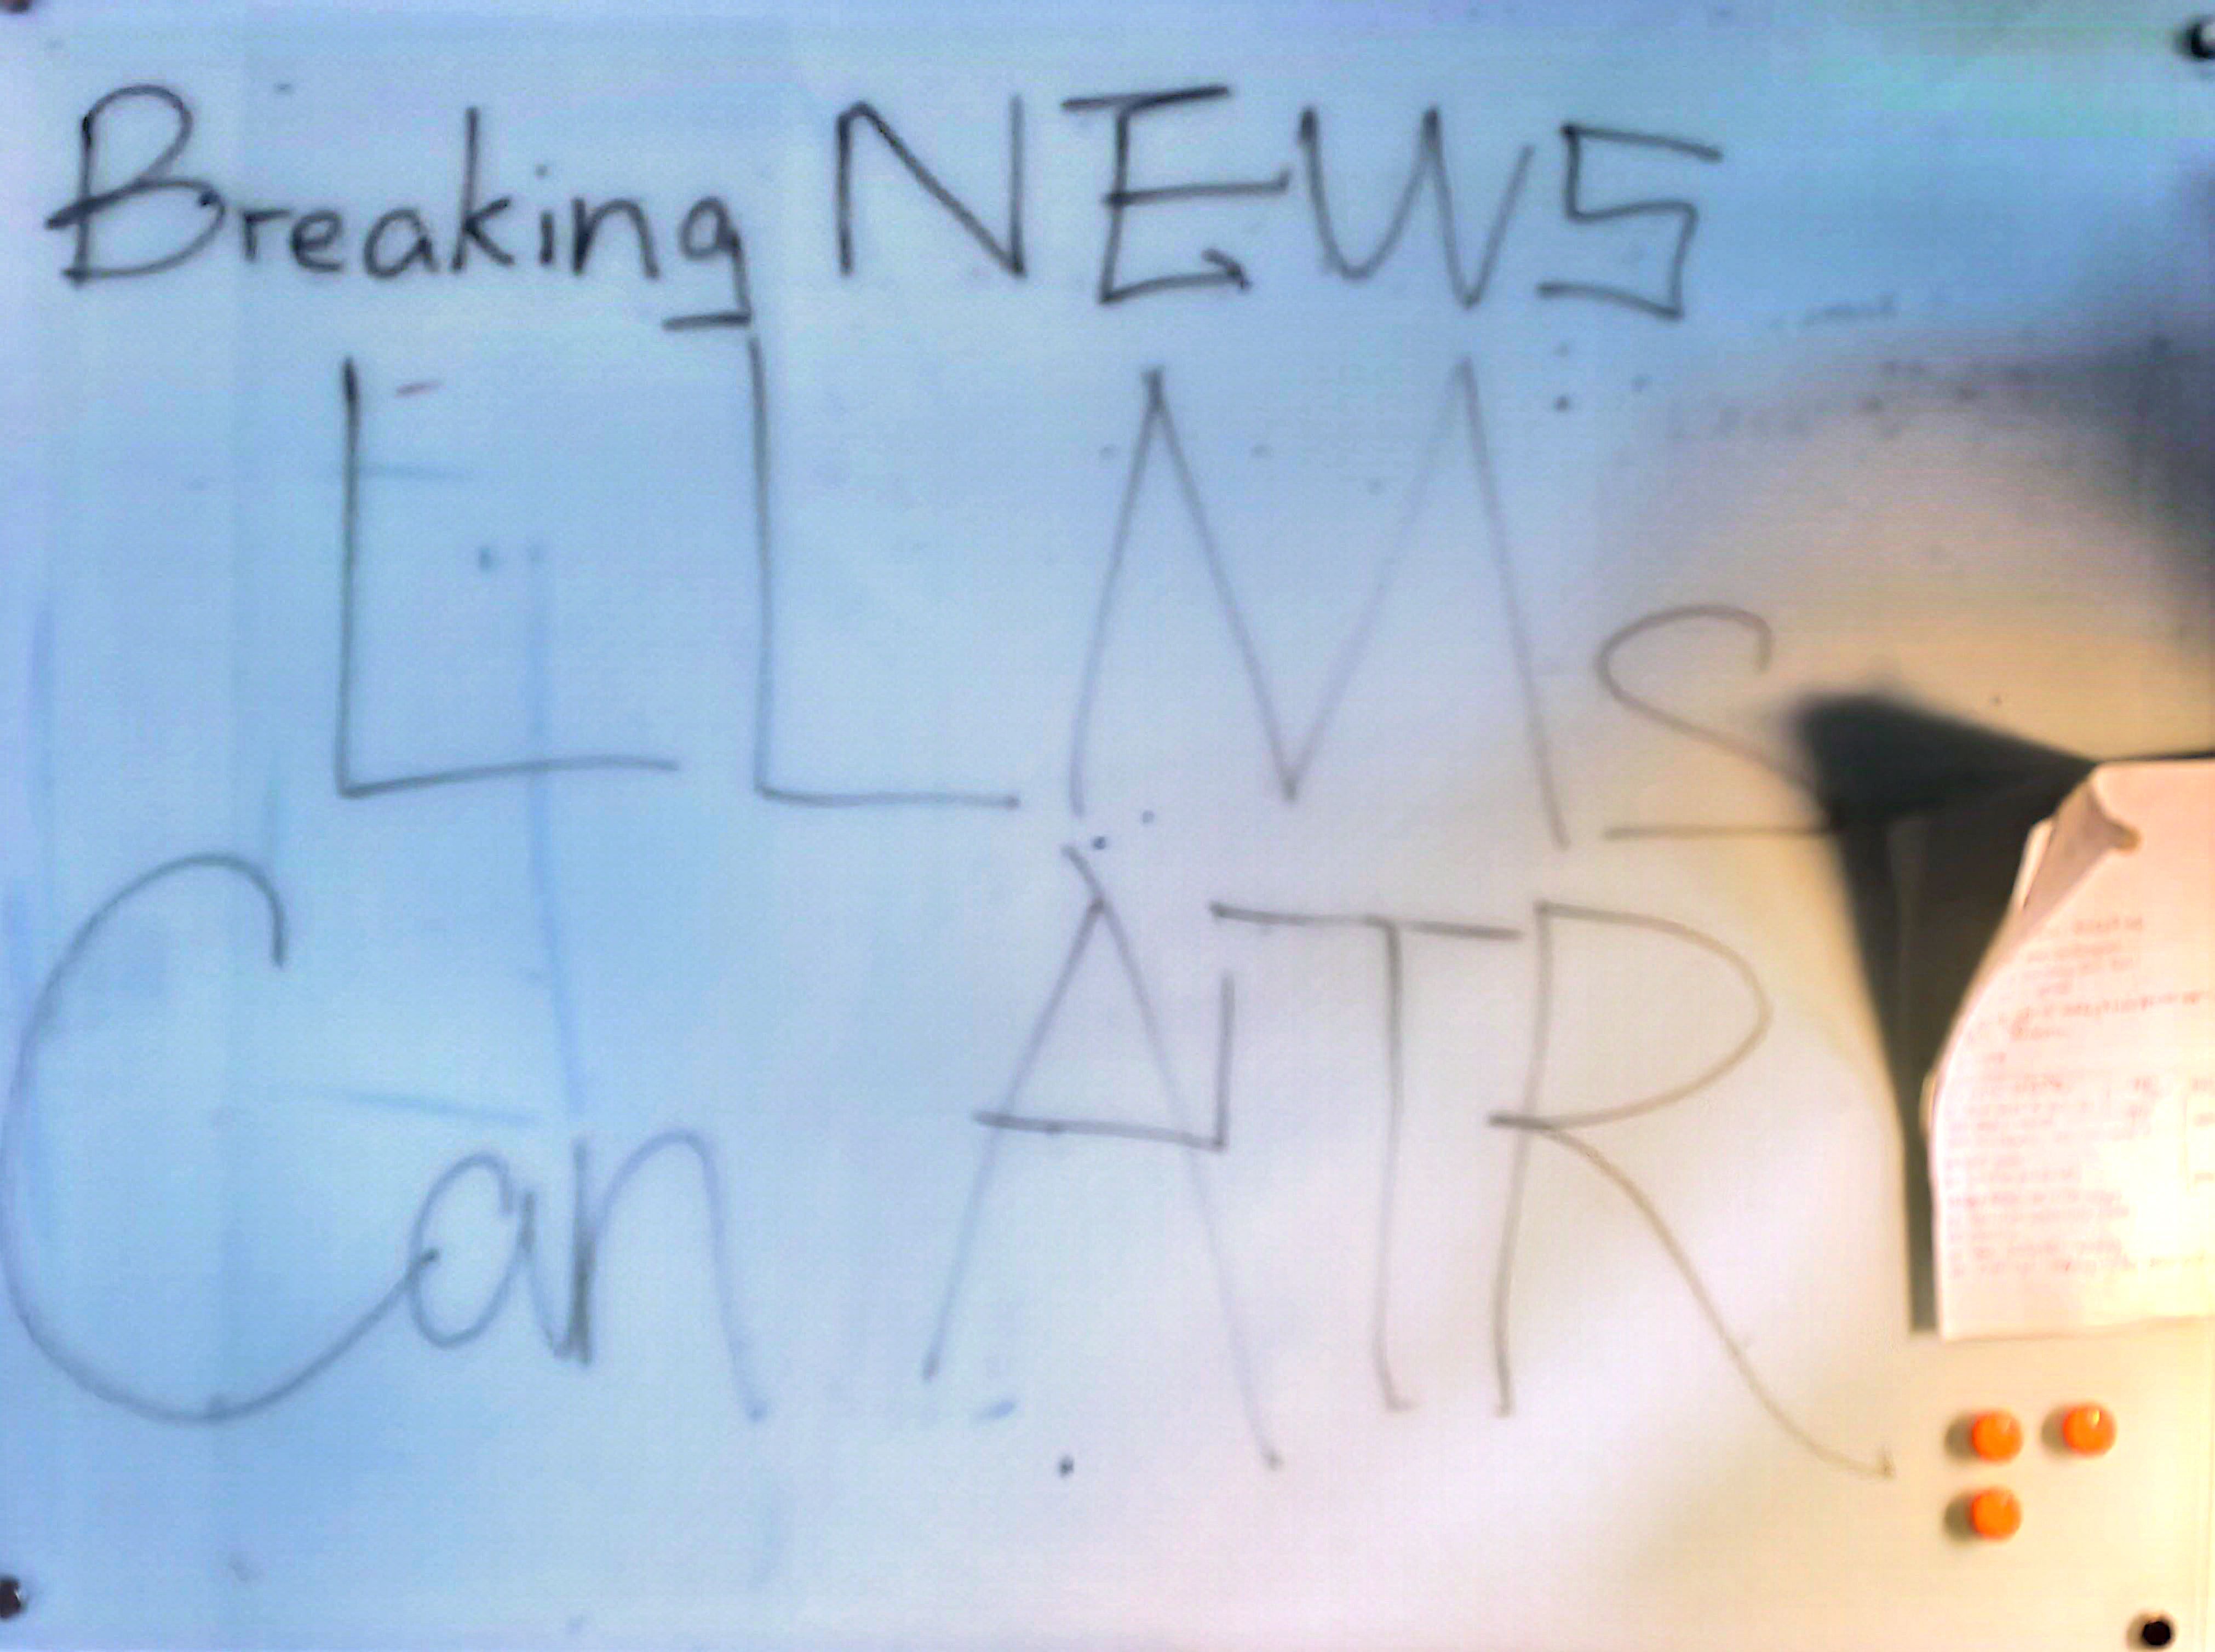 Breaking NEWS
LLMs
Can ATR